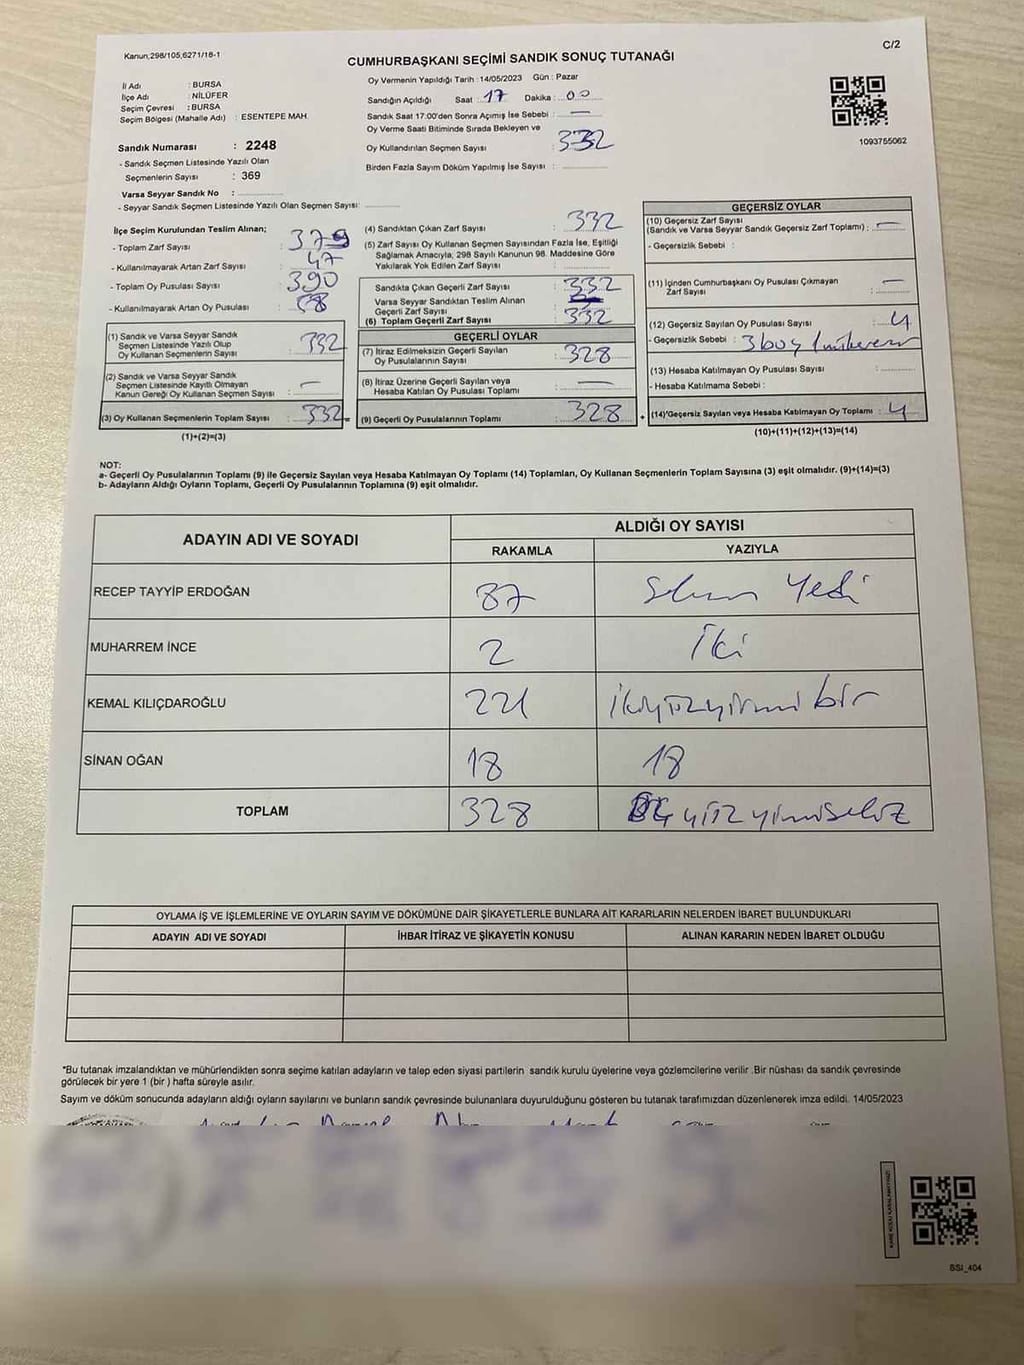 Kanun,298/105,6271/18-1
C/2
CUMHURBAŞKANI SEÇİMİ SANDIK SONUÇ TUTANAĞI
Oy Vermenin Yapıldığı Tarih :14/05/2023 Gün : Pazar
İl Adı : BURSA
İlçe Adı : NİLÜFER
Seçim Çevresi : BURSA
Seçim Bölgesi (Mahalle Adı) : ESENTEPE MAH.
Sandığın Açıldığı Saat : 17 Dakika : 00
Sandık Saat 17:00'den Sonra Açımış İse Sebebi : —
Oy Verme Saati Bitiminde Sırada Bekleyen ve
Oy Kullandırılan Seçmen Sayısı : 332
Birden Fazla Sayım Döküm Yapılmış İse Sayısı :
1093755062
Sandık Numarası : 2248
- Sandık Seçmen Listesinde Yazılı Olan
Seçmenlerin Sayısı : 369
Varsa Seyyar Sandık No :
- Seyyar Sandık Seçmen Listesinde Yazılı Olan Seçmen Sayısı:
İlçe Seçim Kurulundan Teslim Alınan;
- Toplam Zarf Sayısı : 379
- Kullanılmayarak Artan Zarf Sayısı : 47
- Toplam Oy Pusulası Sayısı : 390
- Kullanılmayarak Artan Oy Pusulası : 58
(1) Sandık ve Varsa Seyyar Sandık
Seçmen Listesinde Yazılı Olup
Oy Kullanan Seçmenlerin Sayısı : 332
(2) Sandık ve Varsa Seyyar Sandık
Seçmen Listesinde Kayıtlı Olmayan
Kanun Gereği Oy Kullanan Seçmen Sayısı : —
(3) Oy Kullanan Seçmenlerin Toplam Sayısı : 332 =
(1)+(2)=(3)
(4) Sandıktan Çıkan Zarf Sayısı : 332
(5) Zarf Sayısı Oy Kullanan Seçmen Sayısından Fazla İse, Eşitliği
Sağlamak Amacıyla, 298 Sayılı Kanunun 98. Maddesine Göre
Yakılarak Yok Edilen Zarf Sayısı :
Sandıkta Çıkan Geçerli Zarf Sayısı : 332
Varsa Seyyar Sandıktan Teslim Alınan
Geçerli Zarf Sayısı :
(6) Toplam Geçerli Zarf Sayısı : 332
GEÇERLİ OYLAR
(7) İtiraz Edilmeksizin Geçerli Sayılan
Oy Pusulalarının Sayısı : 328
(8) İtiraz Üzerine Geçerli Sayılan veya
Hesaba Katılan Oy Pusulası Toplamı : —
(9) Geçerli Oy Pusulalarının Toplamı : 328 +
GEÇERSİZ OYLAR
(10) Geçersiz Zarf Sayısı
(Sandık ve Varsa Seyyar Sandık Geçersiz Zarf Toplamı) : —
- Geçersizlik Sebebi :
(11) İçinden Cumhurbaşkanı Oy Pusulası Çıkmayan
Zarf Sayısı : —
(12) Geçersiz Sayılan Oy Pusulası Sayısı : 4
- Geçersizlik Sebebi : 3 boş 1
(13) Hesaba Katılmayan Oy Pusulası Sayısı :
- Hesaba Katılmama Sebebi :
(14)'Geçersiz Sayılan veya Hesaba Katılmayan Oy Toplamı : 4
(10)+(11)+(12)+(13)=(14)
NOT:
a- Geçerli Oy Pusulalarının Toplamı (9) ile Geçersiz Sayılan veya Hesaba Katılmayan Oy Toplamı (14) Toplamları, Oy Kullanan Seçmenlerin Toplam Sayısına (3) eşit olmalıdır. (9)+(14)=(3)
b- Adayların Aldığı Oyların Toplamı, Geçerli Oy Pusulalarının Toplamına (9) eşit olmalıdır.
ADAYIN ADI VE SOYADI
ALDIĞI OY SAYISI
RAKAMLA YAZIYLA
RECEP TAYYİP ERDOĞAN 87 Seksen Yedi
MUHARREM İNCE 2 İki
KEMAL KILIÇDAROĞLU 221 ikiyüzyirmi bir
SİNAN OĞAN 18 18
TOPLAM 328 yüzyirmisekiz
OYLAMA İŞ VE İŞLEMLERİNE VE OYLARIN SAYIM VE DÖKÜMÜNE DAİR ŞİKAYETLERLE BUNLARA AİT KARARLARIN NELERDEN İBARET BULUNDUKLARI
ADAYIN ADI VE SOYADI İHBAR İTİRAZ VE ŞİKAYETİN KONUSU ALINAN KARARIN NEDEN İBARET OLDUĞU
"Bu tutanak imzalandıktan ve mühürlendikten sonra seçime katılan adayların ve talep eden siyasi partilerin sandık kurulu üyelerine veya gözlemcilerine verilir .Bir nüshası da sandık çevresinde
görülecek bir yere 1 (bir ) hafta süreyle asılır.
Sayım ve döküm sonucunda adayların aldığı oyların sayılarını ve bunların sandık çevresinde bulunanlara duyurulduğunu gösteren bu tutanak tarafımızdan düzenlenerek imza edildi. 14/05/2023
BSI_404